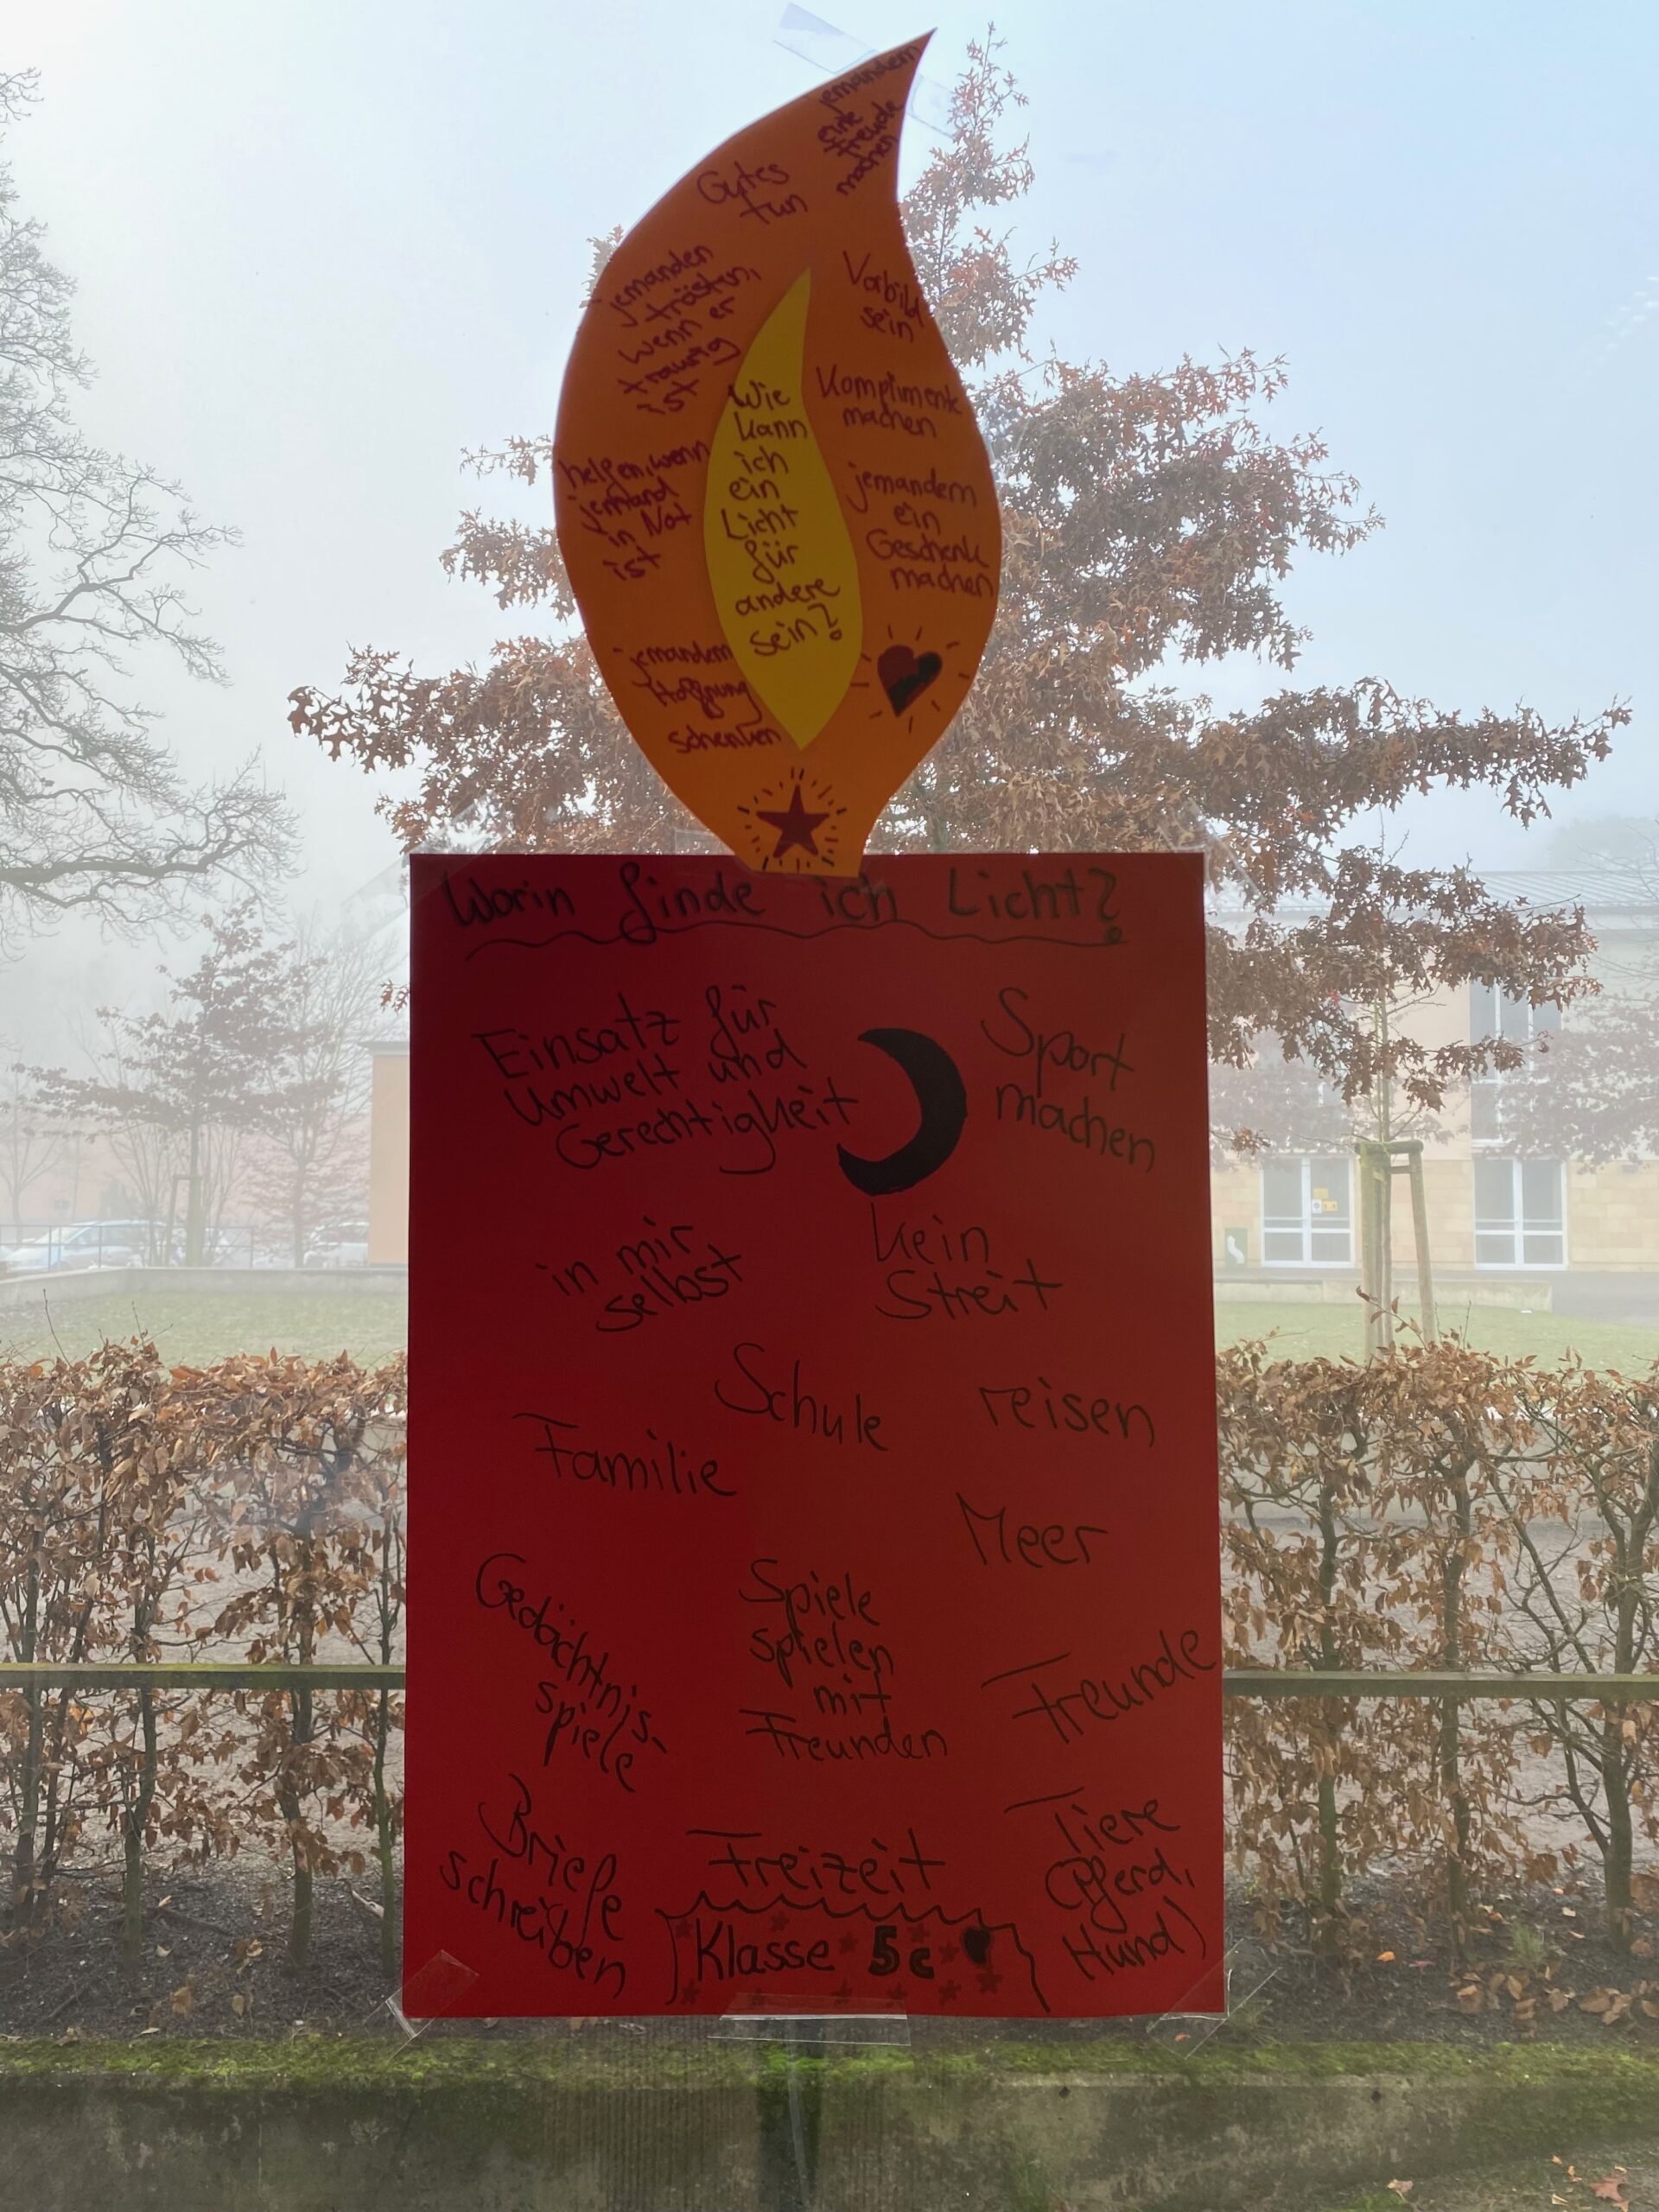 jemandem
eine
Freude
machen
Gutes
tun
jemanden
trösten,
wenn er
traurig
ist
Vorbild
sein
Komplimente
machen
helfen, wenn
jemand
in Not
ist
jemandem
ein
Geschenk
machen
jemandem
Hoffnung
schenken
Wie
kann
ich
ein
Licht
für
andere
sein?
Worin finde ich Licht?
Einsatz für
Umwelt und
Gerechtigkeit
Sport
machen
in mir
selbst
kein
Streit
Schule
reisen
Familie
Meer
Gedächtnis-
spiele
Spiele
spielen
mit
Freunden
Freunde
Briefe
schreiben
Freizeit
Tiere
(Pferd,
Hund)
Klasse 5c